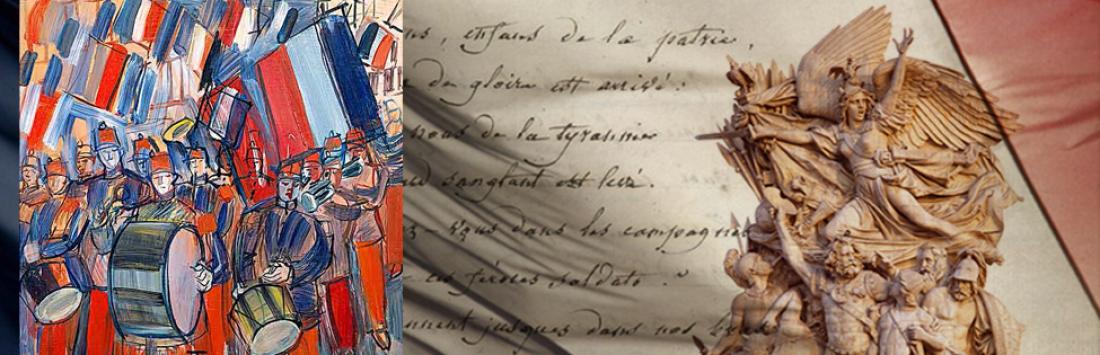 ns, enfans de la patrie,
de gloire est arrivé :
nous de la tyrannie
sanglant est levé.
z-vous dans les compagnes
ces féroces soldats
nnent jusques dans nos bras